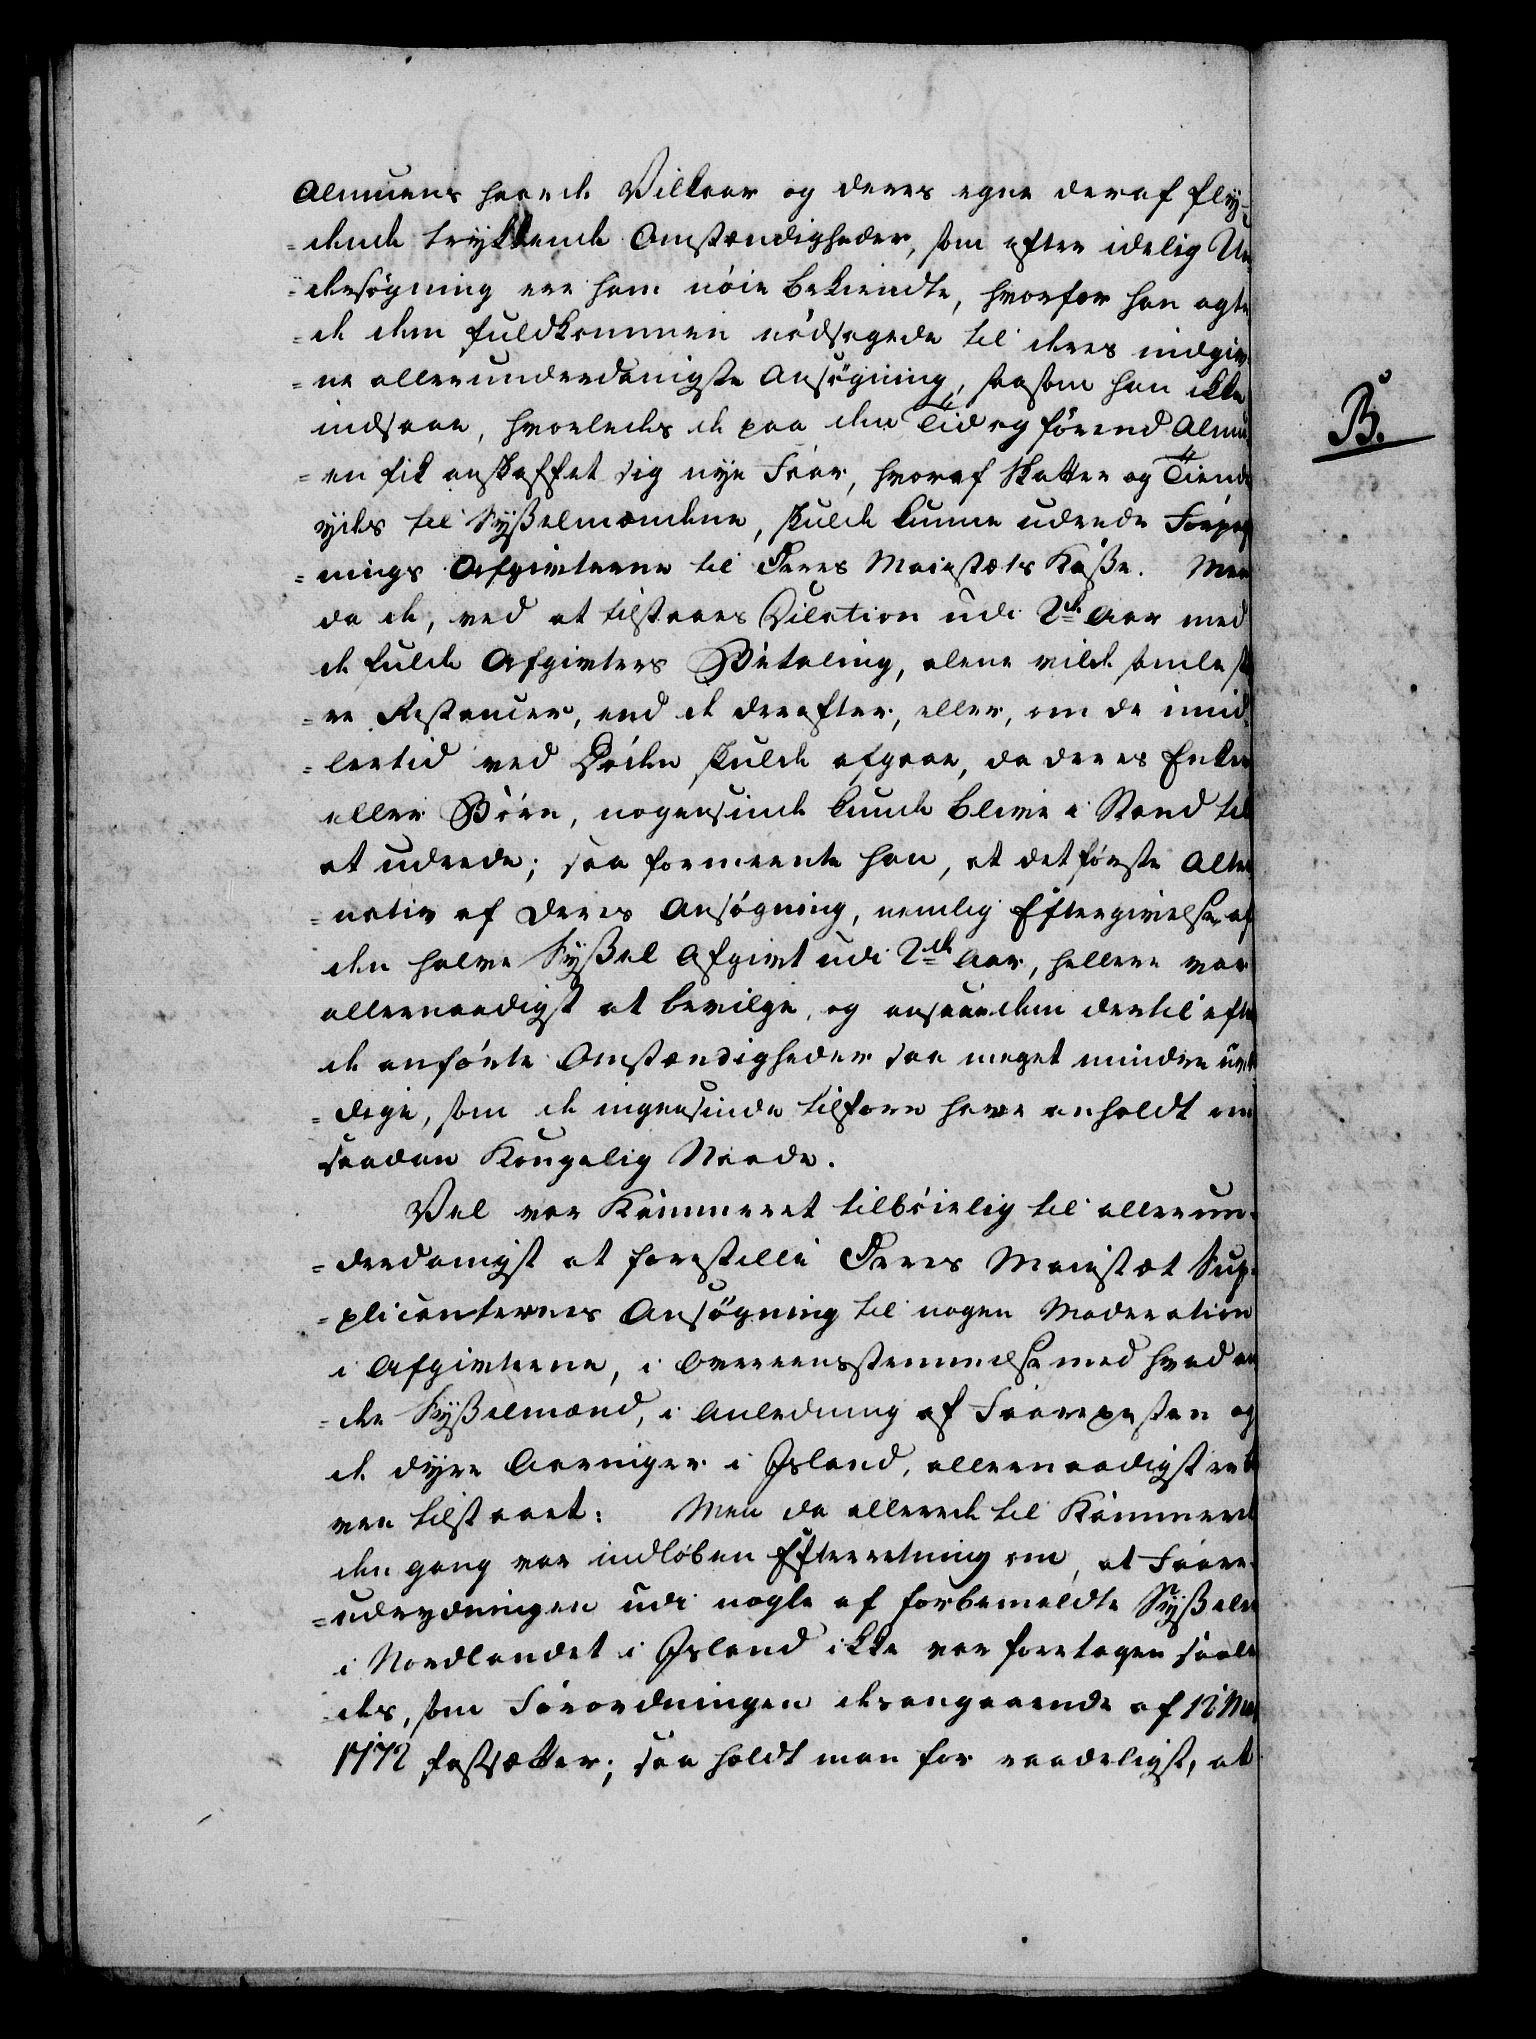 Almuens haarde Vilkaar og deres egne deraf fly-
=dende trykkende Omstændigheder, som efter idelig Un-
=dersøgning ere ham nöie bekiendte, hvorfor han agte-
=de dem fuldkommen nödsagede til deres indgiv-
=ne allerunderdanigste Ansøgning, saasom han ikke
indsaae, hvorledes de paa den Tid og förend Almu-
=en fik anskaffet sig nye Faar, hvoraf Skatter og Tiende
ydes til Sysselmændene, skulde kunne udrede Forpag-
=nings Afgivterne til Deres Maiestæts Kasse. Men
da de, ved at tilstaaes Dilation udi 2de Aar med
de fulde Afgivters Betaling, alene vilde samle stør-
=re Restancer, end de derefter, eller, om de imid-
=lertid ved Döden skulde afgaae, da deres Enker
eller Börn, nogensinde kunde blive i Stand til
at udrede; saa formeente han, at det første Alter-
=nativ af deres Ansøgning, nemlig Eftergivelse af
den halve Syssel Afgivt udi 2de Aar, hellere var
allernaadigst at bevilge, og ansaae dem dertil efter
de anførte Omstændigheder saa meget mindre uvær-
=dige, som de ingensinde tilforn have anholdt om
saadan Kongelig Naade.
Vel var Kammeret tilböielig til allerun-
=derdanigst at forestille Deres Maiestæt Sup-
=plicanternes Ansøgning til nogen Moderation
i Afgivterne, i Overeensstemmelse med hvad an-
=dre Sysselmænd, i Anledning af Faarepesten og
de dyre Aaringer i Island, allernaadigst er ble-
ven tilstaaet: Men da allerede til Kammeret
den gang var indløben Efterretning om, at Faare-
=udrydningen udi nogle af forbemeldte Sysseler
i Nordlandet i Island ikke var foretagen saale-
des, som Forordningen desangaaende af 12 Mai
1772 fastsætter; saa holdt man for raadeligst, at
B.